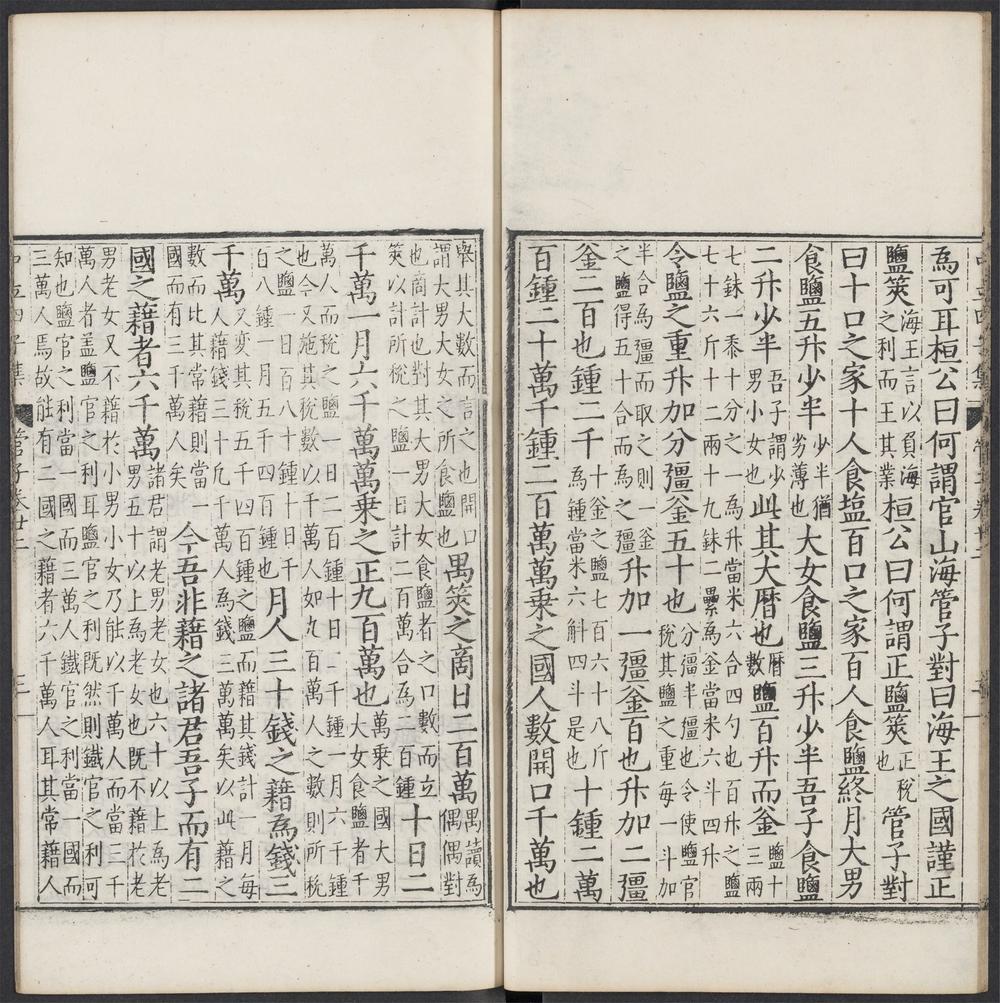 為可耳桓公曰何謂官山海管子對曰海王之國謹正
鹽筴海王言以負海之利而王其業桓公曰何謂正鹽筴正税也管子對
曰十口之家十人食塩百口之家百人食鹽終月大男
食鹽五升少半少半猶劣薄也大女食鹽三升少半吾子食鹽
二升少半吾子謂小男小女也此其大曆也曆數鹽百升而釜鹽十二兩
七銖一黍十分之一為升當米六合四勺也百升之鹽
七十六斤十二兩十九銖二纍為釜當米六斗四升
令鹽之重升加分彊釜五十也分彊半彊也令使鹽官税其鹽之重每一斗加
半合為彊而取之則一釜之鹽得五十合而為之彊升加一彊釜百也升加二彊
釜二百也鍾二千十釜之鹽七百六十八斤為鍾當米六斛四斗是也十鍾二萬
百鍾二十萬千鍾二百萬萬乘之國人數開口千萬也
舉其大數而言之也開口謂大男大女之所食鹽也禺筴之商日二百萬禺讀為偶偶對
也商計也對其大男大女食鹽者之口數而立
筴以計所税之鹽一日計二百萬合為二百鍾十日二
千萬一月六千萬萬乘之正九百萬也萬乘之國大男大女食鹽者千
萬人而税之鹽一日二百鍾十日二千鍾一月六千鍾
也今又施其税數以千萬人如九百萬人之數則所税
之鹽一日百八十鍾十日千百八鍾一月五千四百鍾也月人三十錢之藉為錢三
千萬又變其税五千四百鍾之鹽而藉其錢計一月每人藉錢三十凡千萬人為錢三萬萬矣以此藉之
數而比其常藉則當一國而有三千萬人矣今吾非藉之諸君吾子而有二
國之藉者六千萬諸君謂老男老女也六十以上為老男五十以上為老女也既不藉於老
男老女又不藉於小男小女乃能以千萬人而當三千
萬人者盖鹽官之利耳鹽官之利既然則鐵官之利可
知也鹽官之利當一國而三萬人鐵官之利當一國而
三萬人焉故能有二國之藉者六千萬人耳其常藉人
管子卷廿二
三